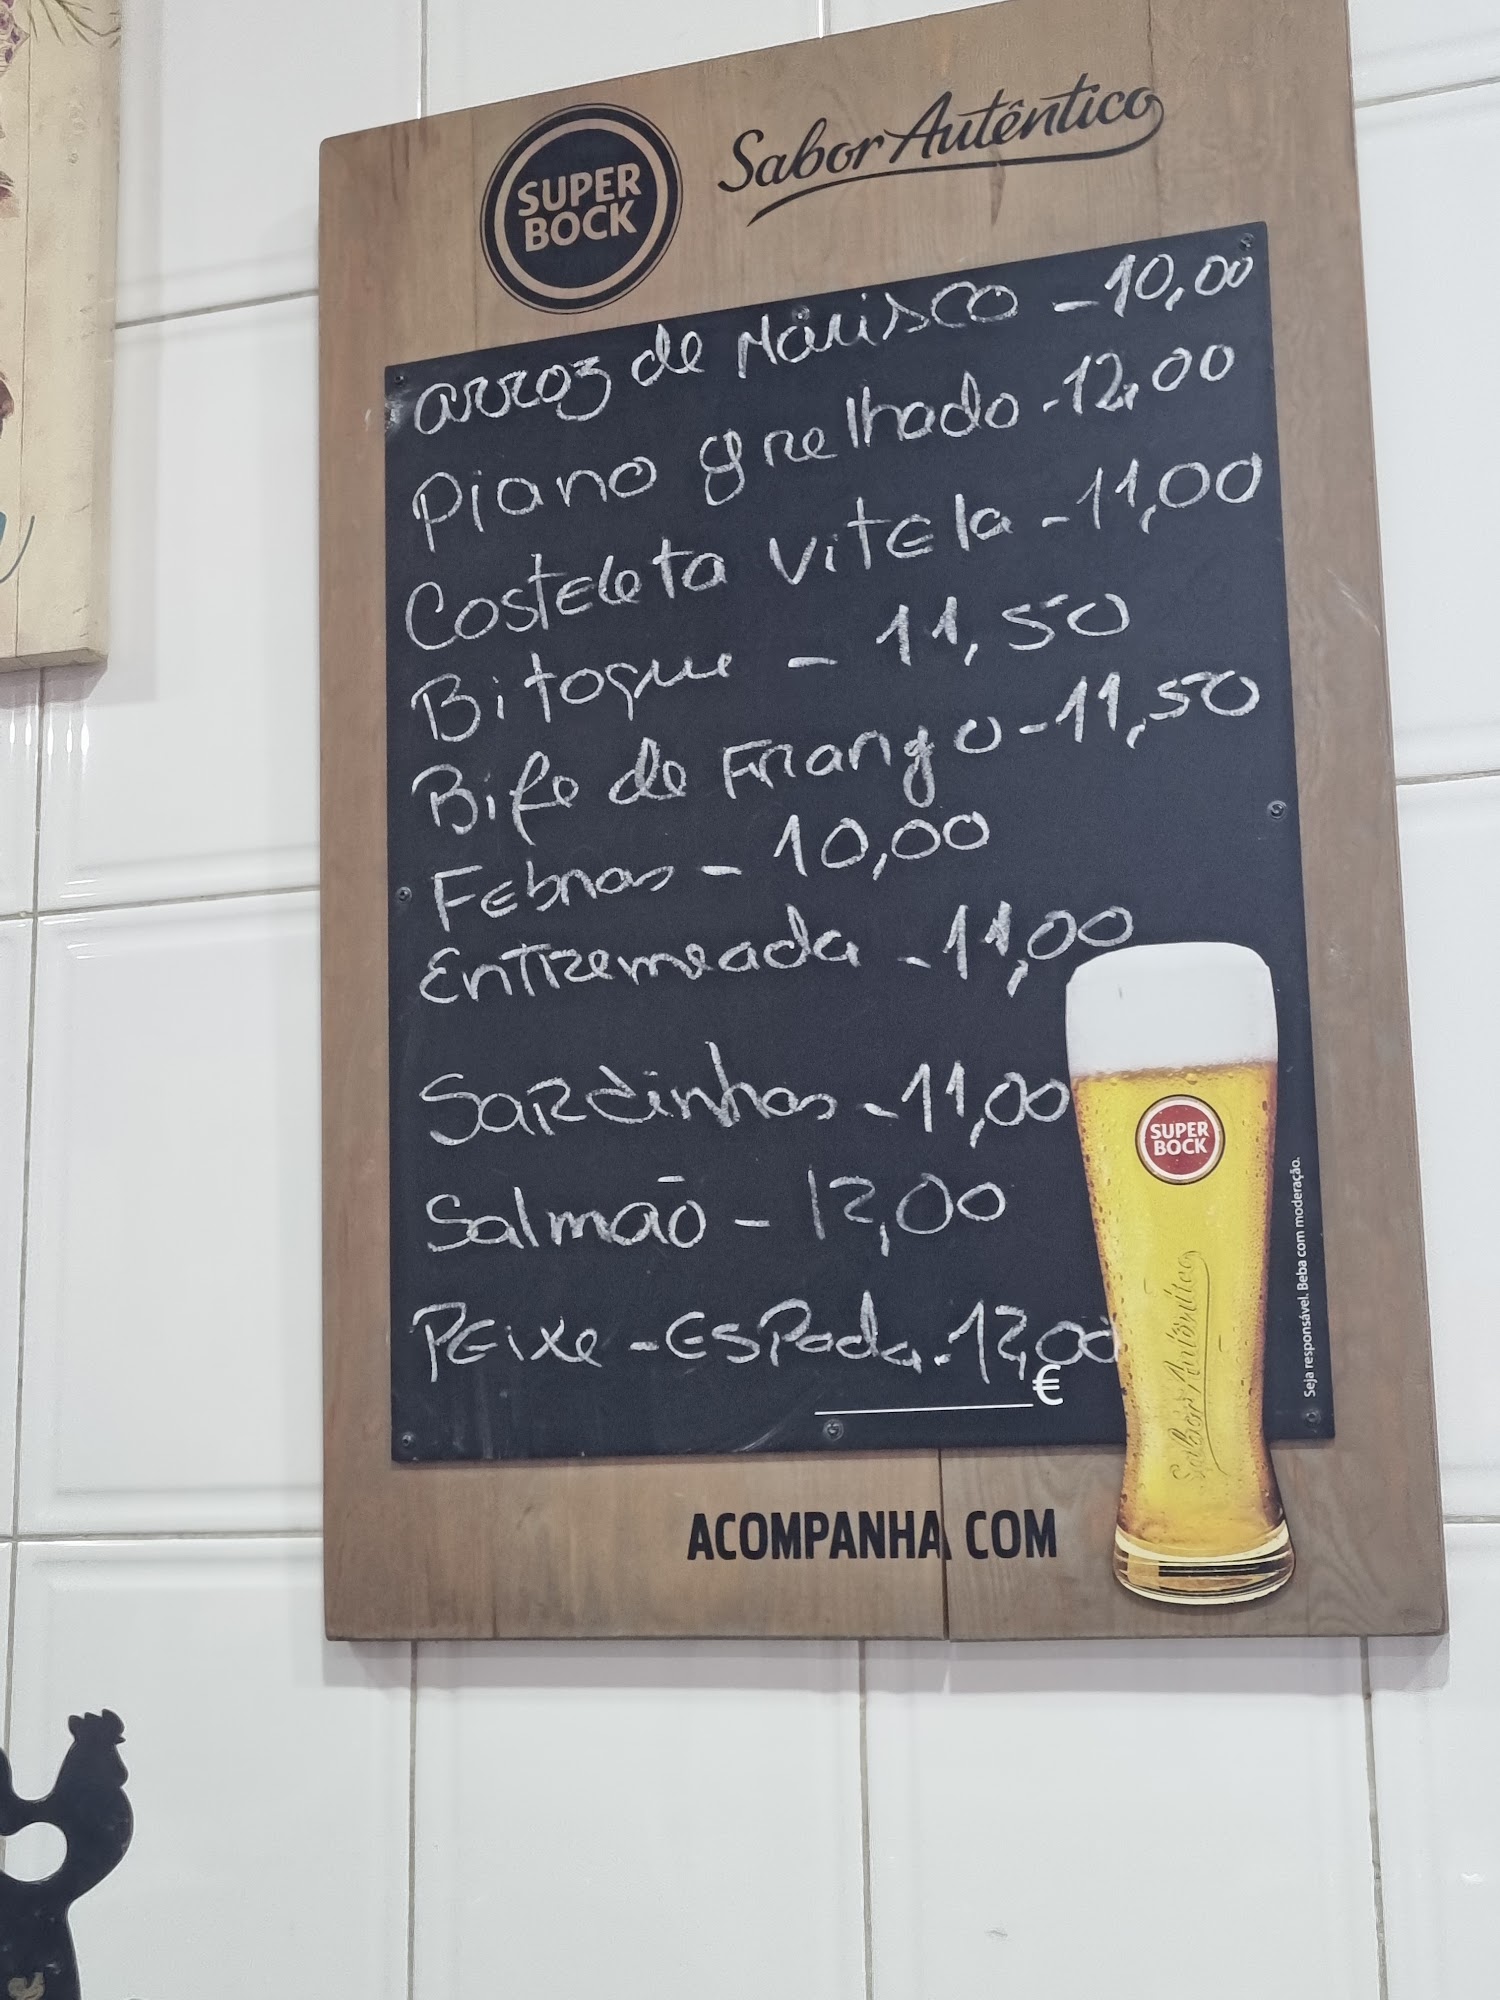 SUPER
BOCK
Sabor Autêntico
arroz de Marisco - 10,00
Piano grelhado - 12,00
Costeleta Vitela - 11,00
Bitoque - 11,50
Bife de Frango - 11,50
Febras - 10,00
Entremeada - 11,00
Sardinhas - 11,00
Salmão - 12,00
Peixe - Espada - 12,00
€
SUPER
BOCK
Sabor Autêntico
Seja responsável. Beba com moderação.
ACOMPANHA COM